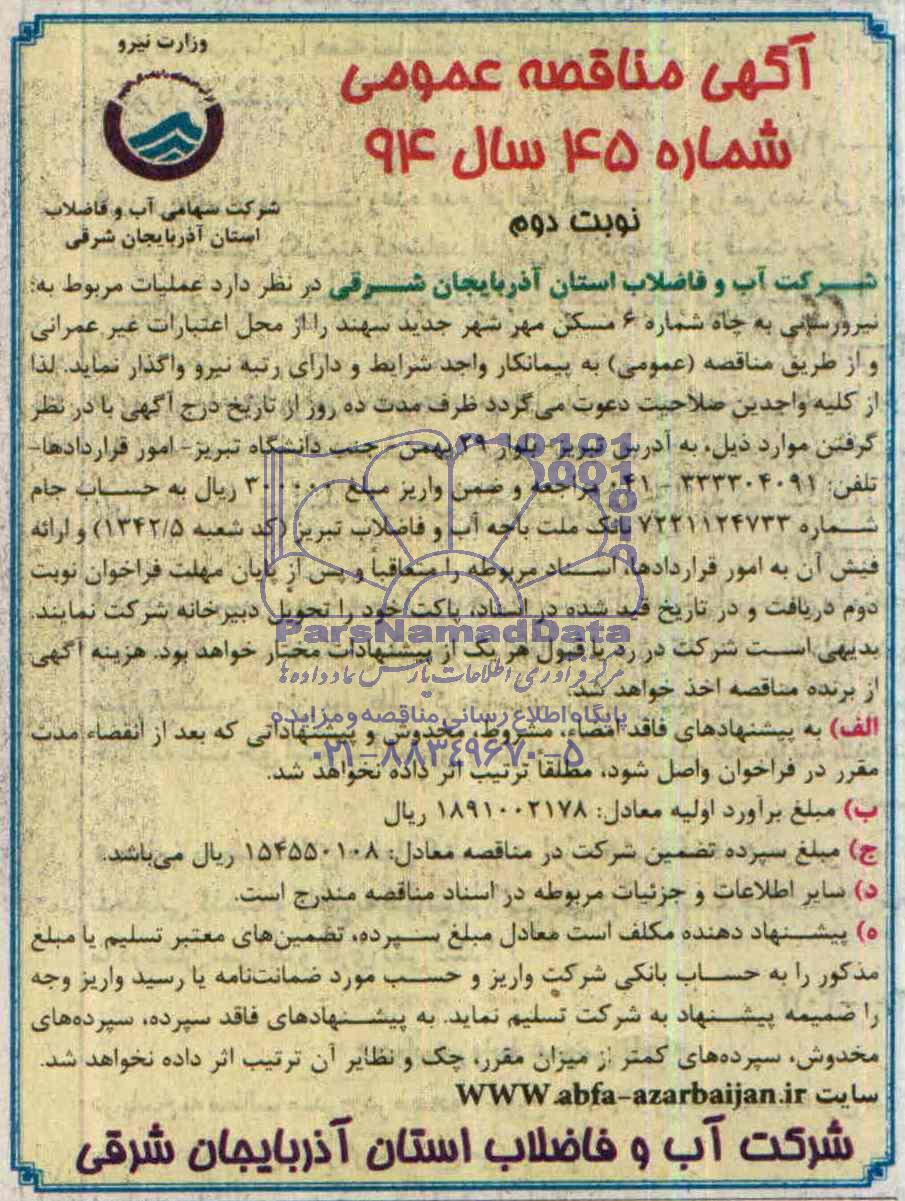 وزارت نیرو
شرکت سهامی آب و فاضلاب
استان آذربایجان شرقی
آگهی مناقصه عمومی
شماره ۴۵ سال ۹۴
نوبت دوم
شرکت آب و فاضلاب استان آذربایجان شرقی در نظر دارد عملیات مربوط به:
نیرورسانی به چاه شماره ۶ مسکن مهر شهر جدید سهند را از محل اعتبارات غیر عمرانی
و از طریق مناقصه (عمومی) به پیمانکار واجد شرایط و دارای رتبه نیرو واگذار نماید. لذا
از کلیه واجدین صلاحیت دعوت می‌گردد ظرف مدت ده روز از تاریخ درج آگهی با در نظر
گرفتن موارد ذیل، به آدرس تبریز- بلوار ۲۹ بهمن - جنب دانشگاه تبریز- امور قراردادها-
تلفن: ۳۳۳۳۰۴۰۹۱ - ۰۴۱ مراجعه و ضمن واریز مبلغ ریال به حساب جام
شماره ۷۲۲۱۱۲۴۷۳۳ بانک ملت باجه آب و فاضلاب تبریز (کد شعبه ۱۳۴۲/۵) و ارائه
فیش آن به امور قراردادها، اسناد مربوطه را متعاقباً و پس از پایان مهلت فراخوان نوبت
دوم دریافت و در تاریخ قید شده در اسناد، پاکت خود را تحویل دبیرخانه شرکت نمایند.
بدیهی است شرکت در رد یا قبول هر یک از پیشنهادات مختار خواهد بود. هزینه آگهی
از برنده مناقصه اخذ خواهد شد.
الف) به پیشنهادهای فاقد امضاء، مشروط، مخدوش و پیشنهاداتی که بعد از انقضاء مدت
مقرر در فراخوان واصل شود، مطلقا ترتیب اثر داده نخواهد شد.
ب) مبلغ برآورد اولیه معادل: ۱۸۹۱۰۰۲۱۷۸ ریال
ج) مبلغ سپرده تضمین شرکت در مناقصه معادل: ۱۵۴۵۵۰۱۰۸ ریال می‌باشد.
د) سایر اطلاعات و جزئیات مربوطه در اسناد مناقصه مندرج است.
ه) پیشنهاد دهنده مکلف است معادل مبلغ سپرده، تضمین‌های معتبر تسلیم یا مبلغ
مذکور را به حساب بانکی شرکت واریز و حسب مورد ضمانت‌نامه یا رسید واریز وجه
را ضمیمه پیشنهاد به شرکت تسلیم نماید. به پیشنهادهای فاقد سپرده، سپرده‌های
مخدوش، سپرده‌های کمتر از میزان مقرر، چک و نظایر آن ترتیب اثر داده نخواهد شد.
سایت WWW.abfa-azarbaijan.ir
شرکت آب و فاضلاب استان آذربایجان شرقی
ParsNamadData
مرکز فرآوری اطلاعات پارس نماد داده ها
پایگاه اطلاع رسانی مناقصه و مزایده
۰۲۱-۸۸۳۴۹۶۷۰-۵